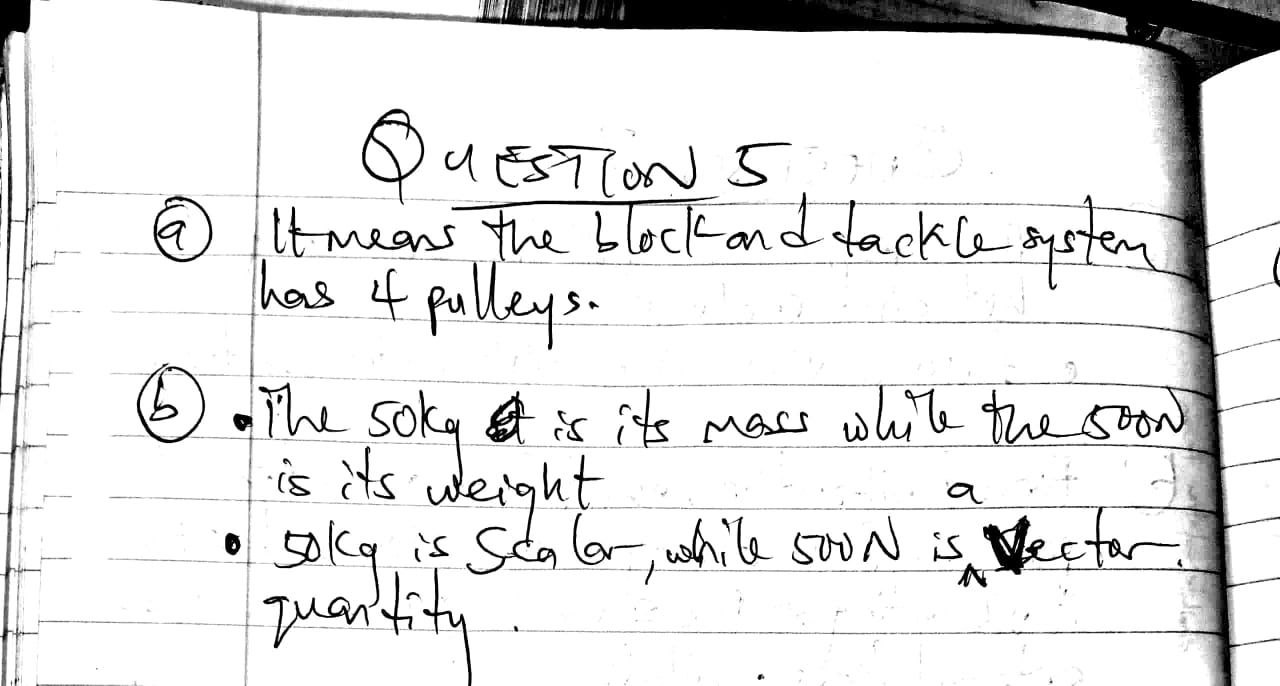 QUESTION 5
(a) It means the block and tackle system
has 4 pulleys.
(b) • The 50kg is its mass while the 500N
is its weight
a
• 50kg is Scalar, while 500N is ^ Vector.
quantity.